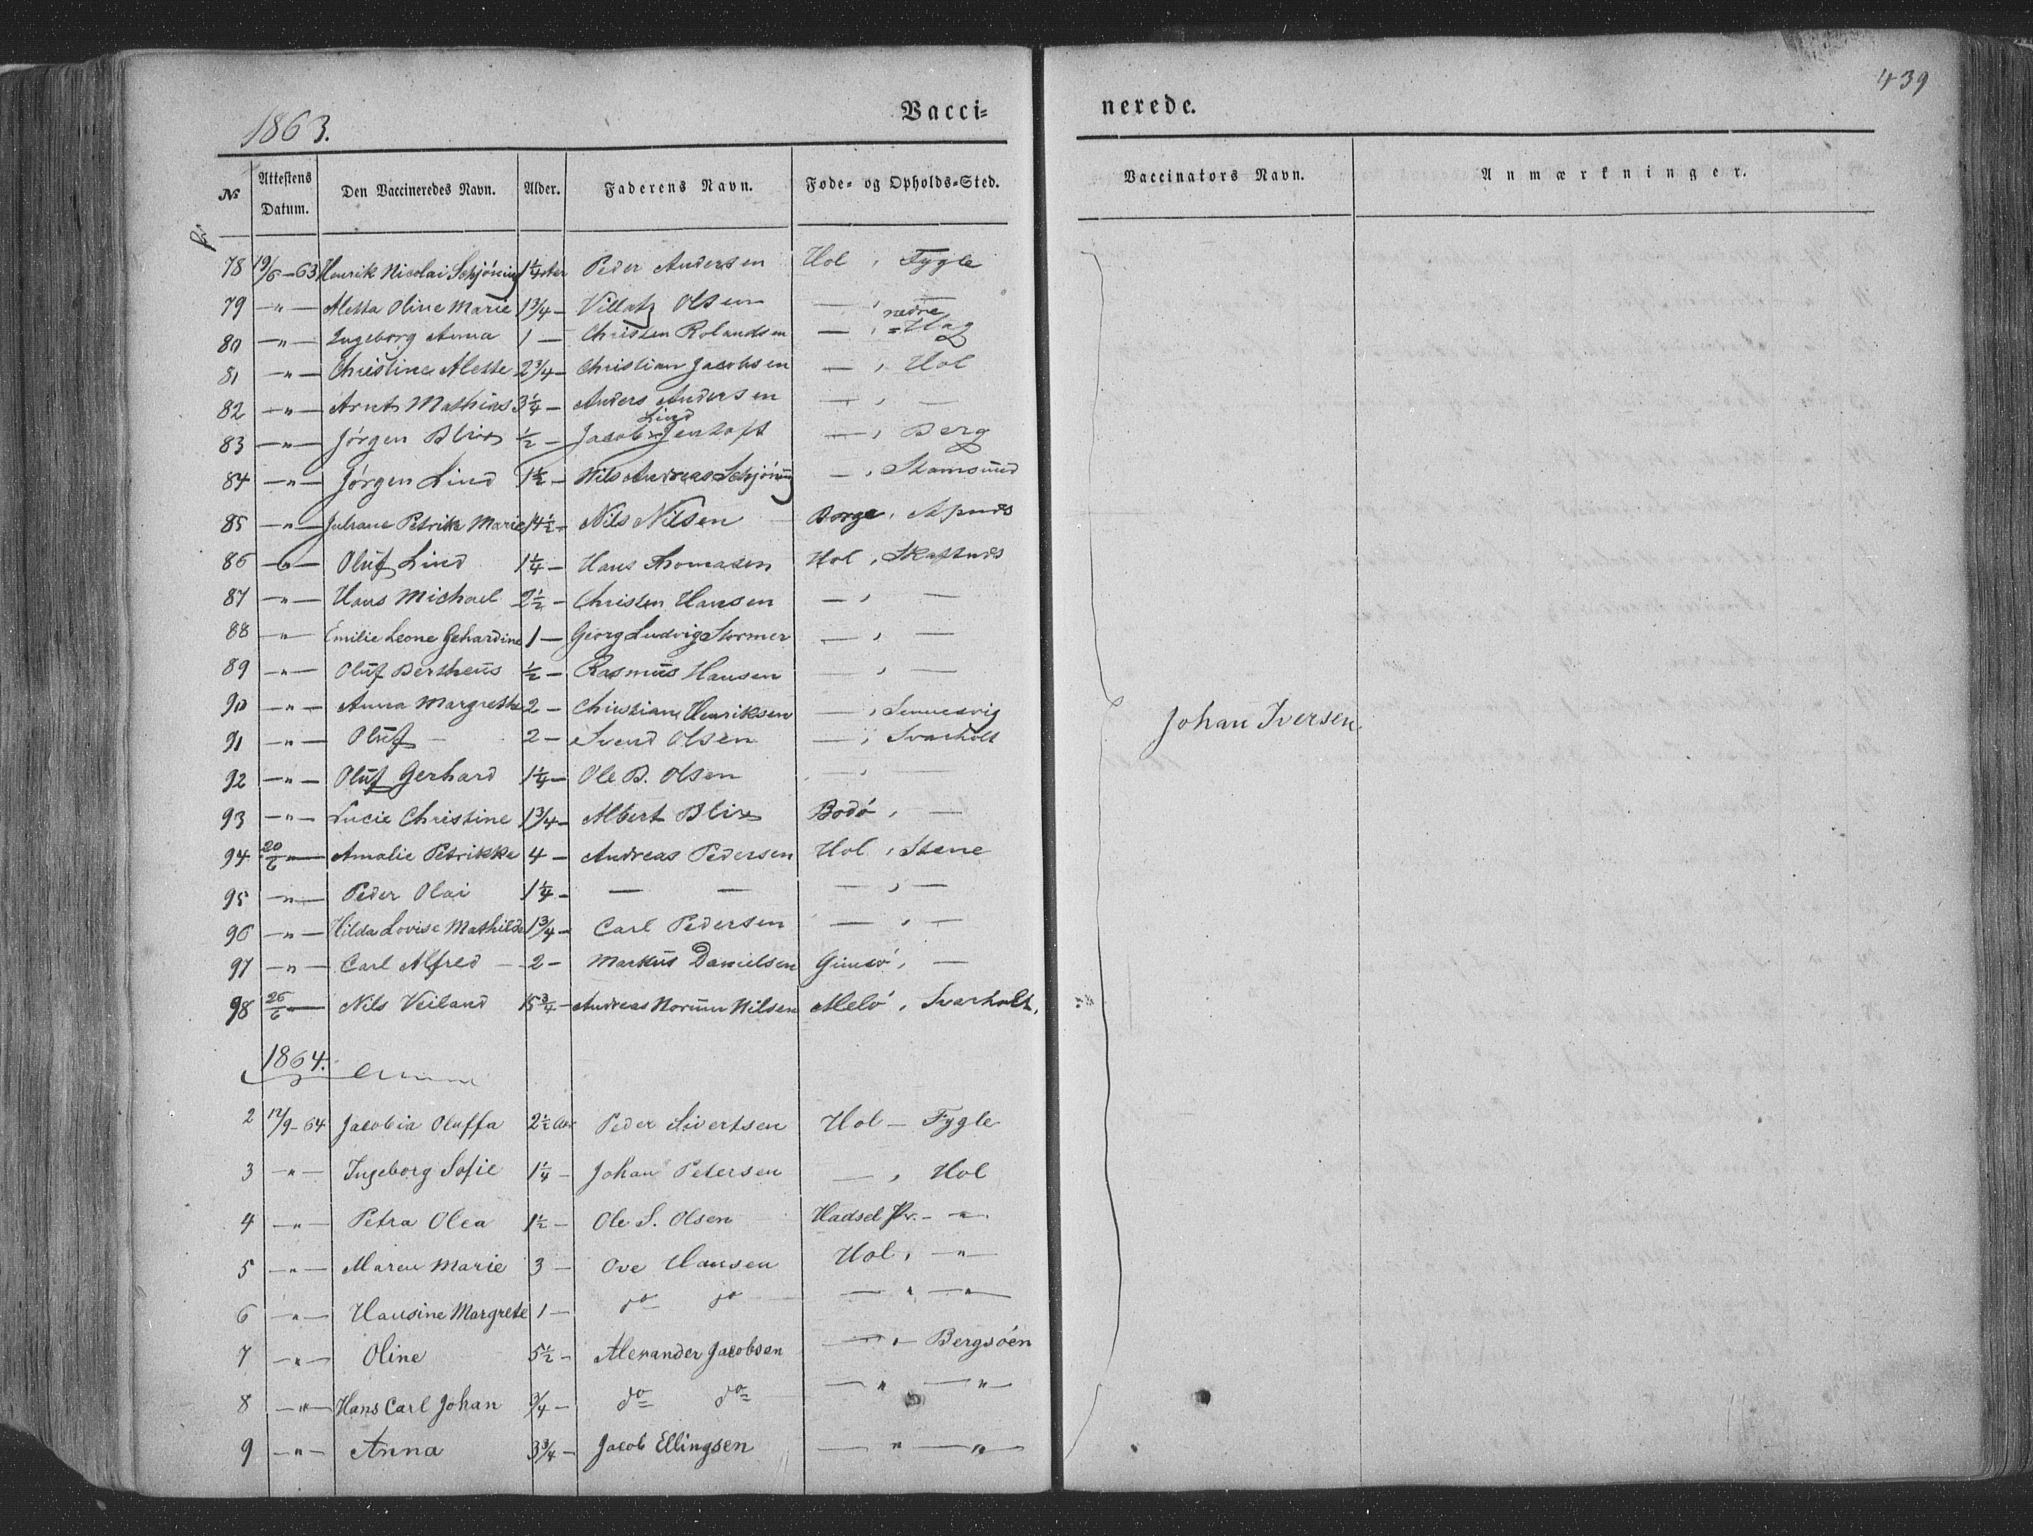 439
1863. Vaccinerede.
No Attestens Datum. Den Vaccineredes Navn. Alder. Faderens Navn. Føde- og Opholds-Sted. Vaccinators Navn. Anmærkninger.
78 19/6 - 63 Henrik Nicolai Schjöning 1 1/4 Peder Andersen Hol , Fygle
79 — " — Aletta Oline Marie 1 3/4 — Olsen — , —
80 — " — Ingeborg Anna 1 — Christen Rolandsen — , nedre Hag
81 — " — Christine Alette 2 3/4 — Christian Jacobsen — , Hol
82 — " — Arnt Mathias 3 1/4 — Anders Andersen — , —
83 — " — Jörgen Blix 1/2 — Jacob Lind Jentoft — , Berg
84 — " — Jörgen Lind 1 1/2 — Nils Andreas Schjöning — , Stamsund
85 — " — Juliane Petrike Marie 14 1/2 — Nils Nilsen Borge ,
86 — " — Oluf Lind 1 1/4 — Hans Thomasen Hol , Skaftnes
87 — " — Hans Michael 2 1/2 — Christen Hansen — , —
88 — " — Emilie Leone Gehardine 1 — Georg Ludvig Stormer — , —
89 — " — Oluf Bertheus 1/2 — Rasmus Hansen — , —
90 — " — Anna Margrethe 2 — Christian Henriksen — , Sennesvig
91 — " — Oluf — 2 — Svend Olsen — , Svarholt
92 — " — Oluf Gerhard 1 1/4 — Ole B. Olsen — , —
93 — " — Lucie Christine 1 3/4 — Albert Blix Bodö , —
94 20/6 " — Amalie Petrikke 4 — Andreas Pedersen Hol , Stene
95 — " — Peder Olai 1 1/4 — — — — , —
96 — " — Hilda Lovise Mathilde 1 3/4 — Carl Pedersen — , —
97 — " — Carl Alfred — 2 — Markus Danielsen Gimsö , —
98 26/6 — Nils Veiland 15 3/4 — Andreas Norum Nilsen Melö , Svarholt,
Johan Iversen
1864.
2 12/9 - 64 Jacobia Oluffa 2 1/2 Peder Sivertsen Hol — Fygle
3 — " — Ingeborg Sofie 1 1/4 — Johan Petersen — , Hol
4 — " — Petra Olea 1 1/2 — Ole S. Olsen Hadsel Pr. — " —
5 — " — Maren Marie 3 — Ove Hansen Hol , — " —
6 — " — Hansine Margrete 1 — do do — " — " —
7 — " — Oline 5 1/2 — Alexander Jacobsen — " — Bergsöen
8 — " — Hans Carl Johan 3/4 — do do — " — " —
9 — " — Anna 3 3/4 — Jacob Ellingsen — " — " —